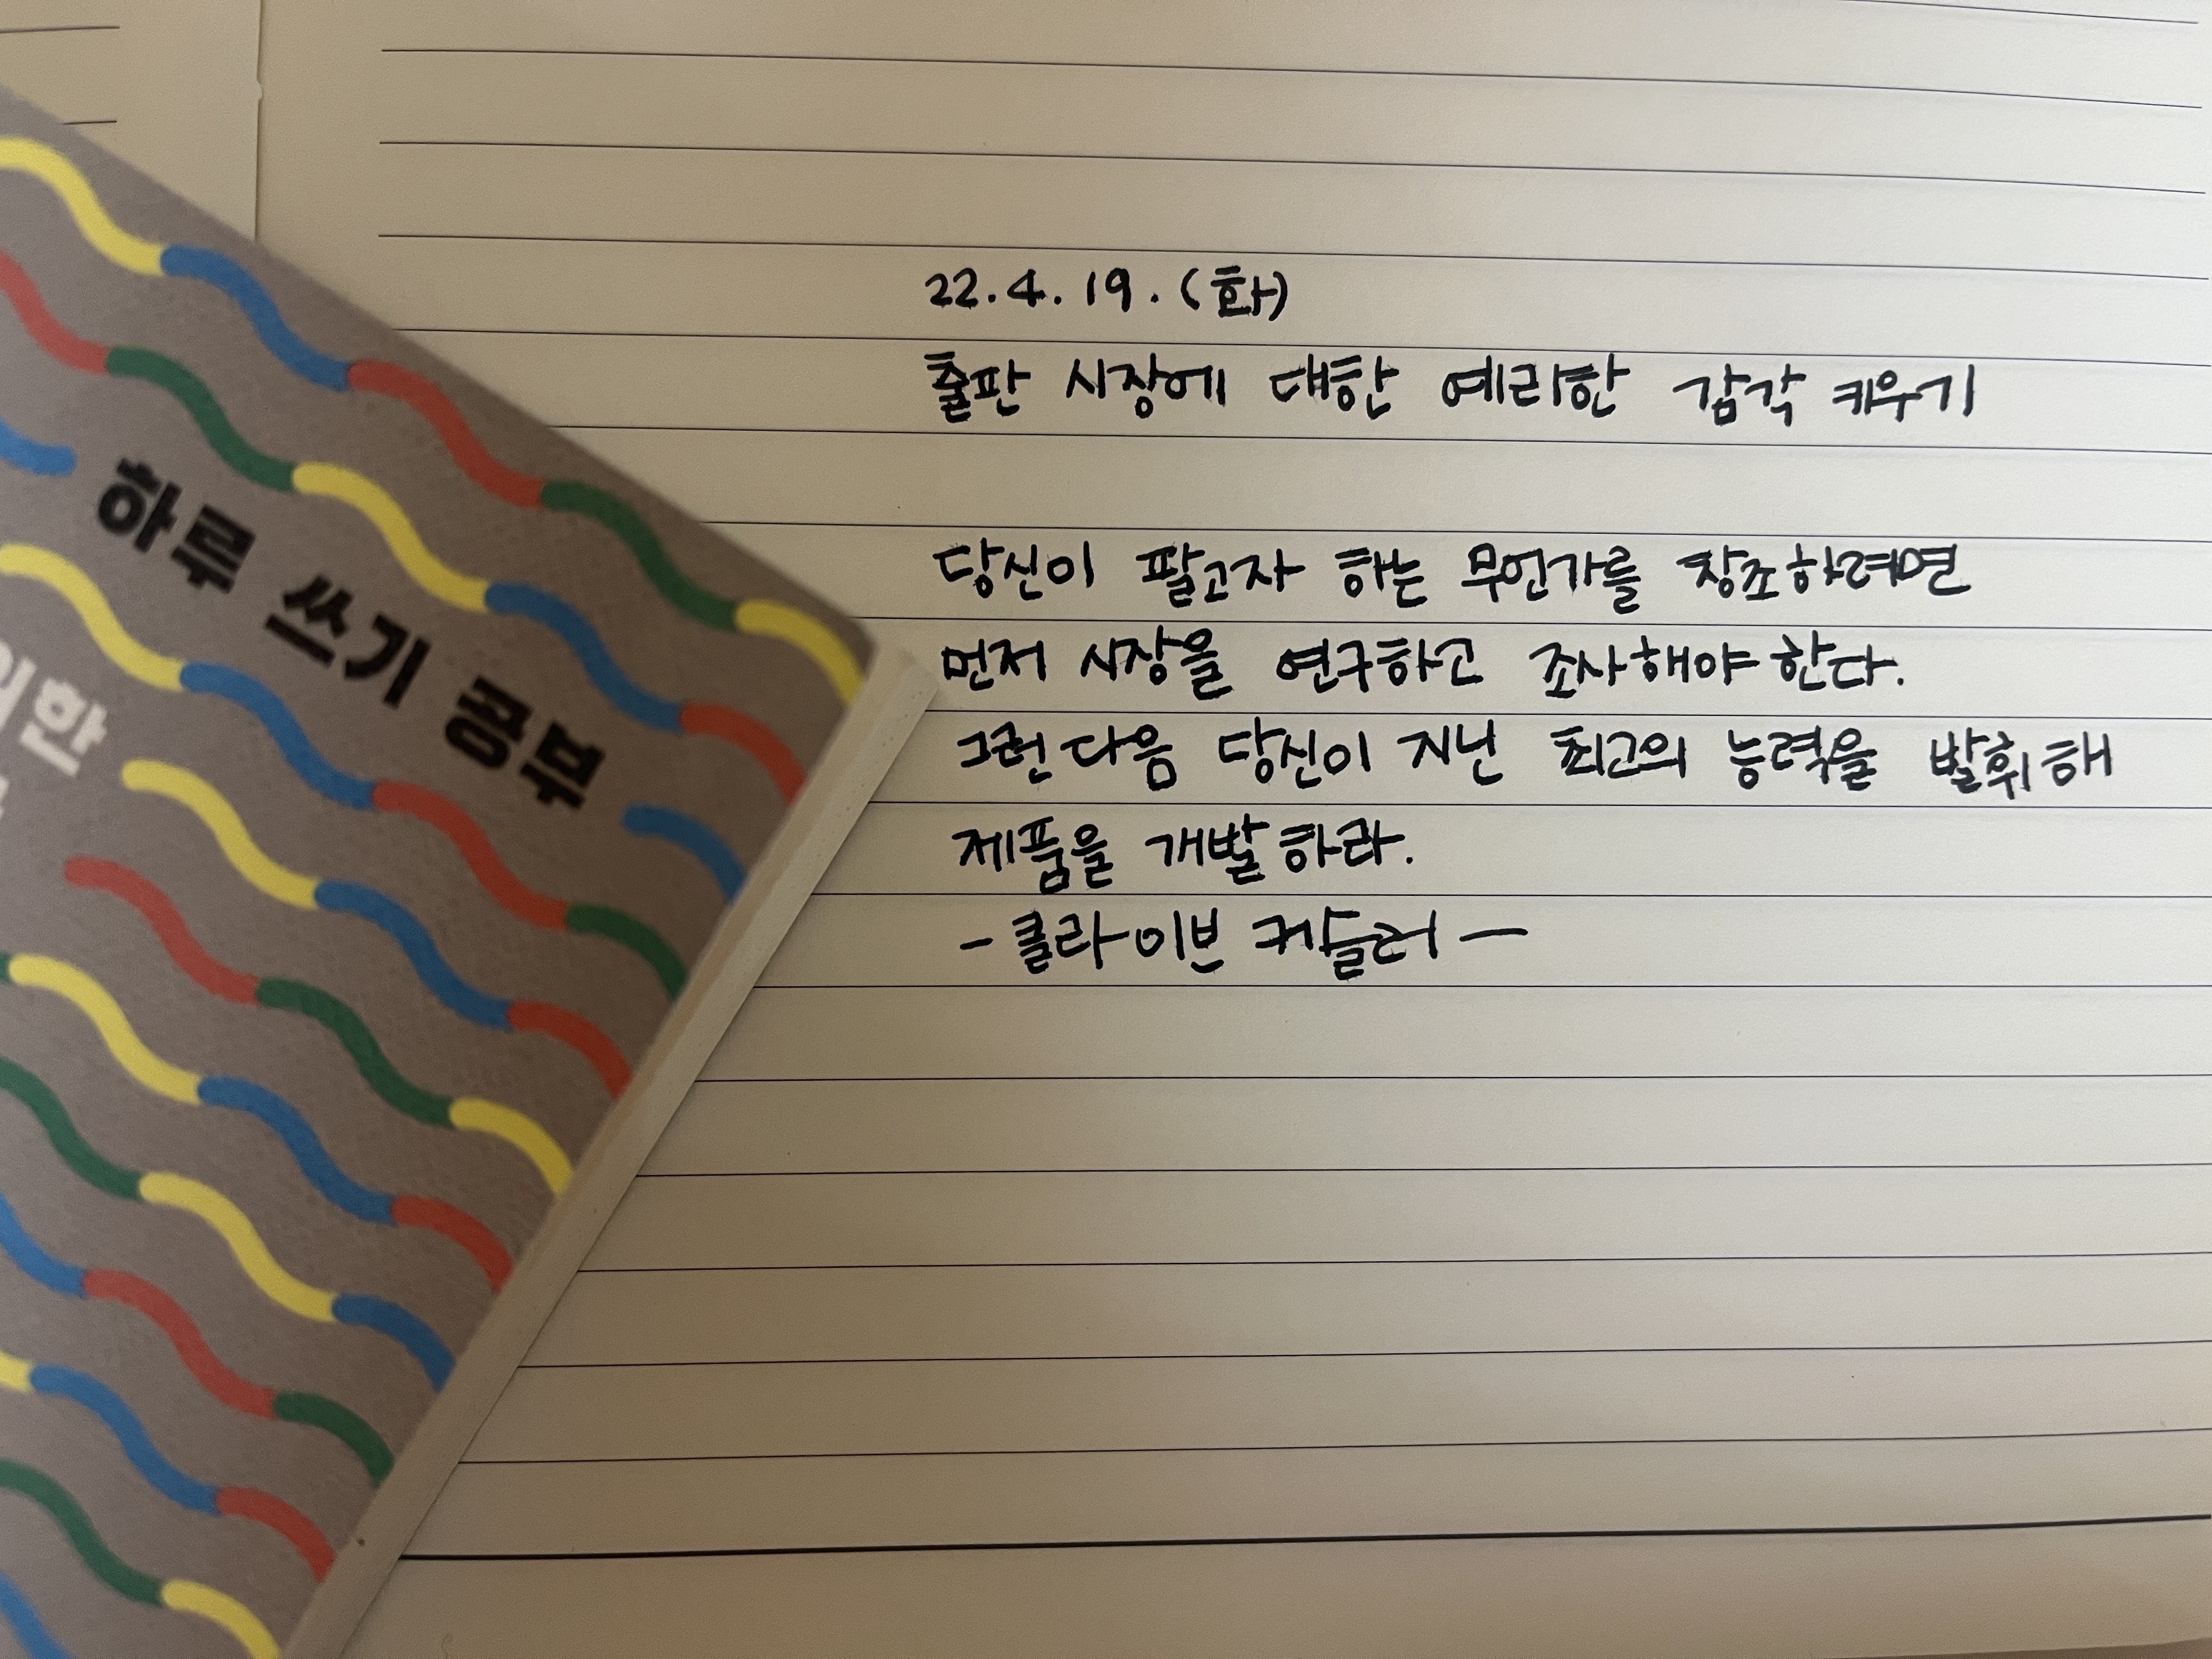 하루 쓰기 공부
22.4.19.(화)
출판 시장에 대한 예리한 감각 키우기
당신이 팔고자 하는 무언가를 창조하려면
먼저 시장을 연구하고 조사해야 한다.
그런 다음 당신이 지닌 최고의 능력을 발휘해
제품을 개발하라.
- 클라이브 커슬러 -